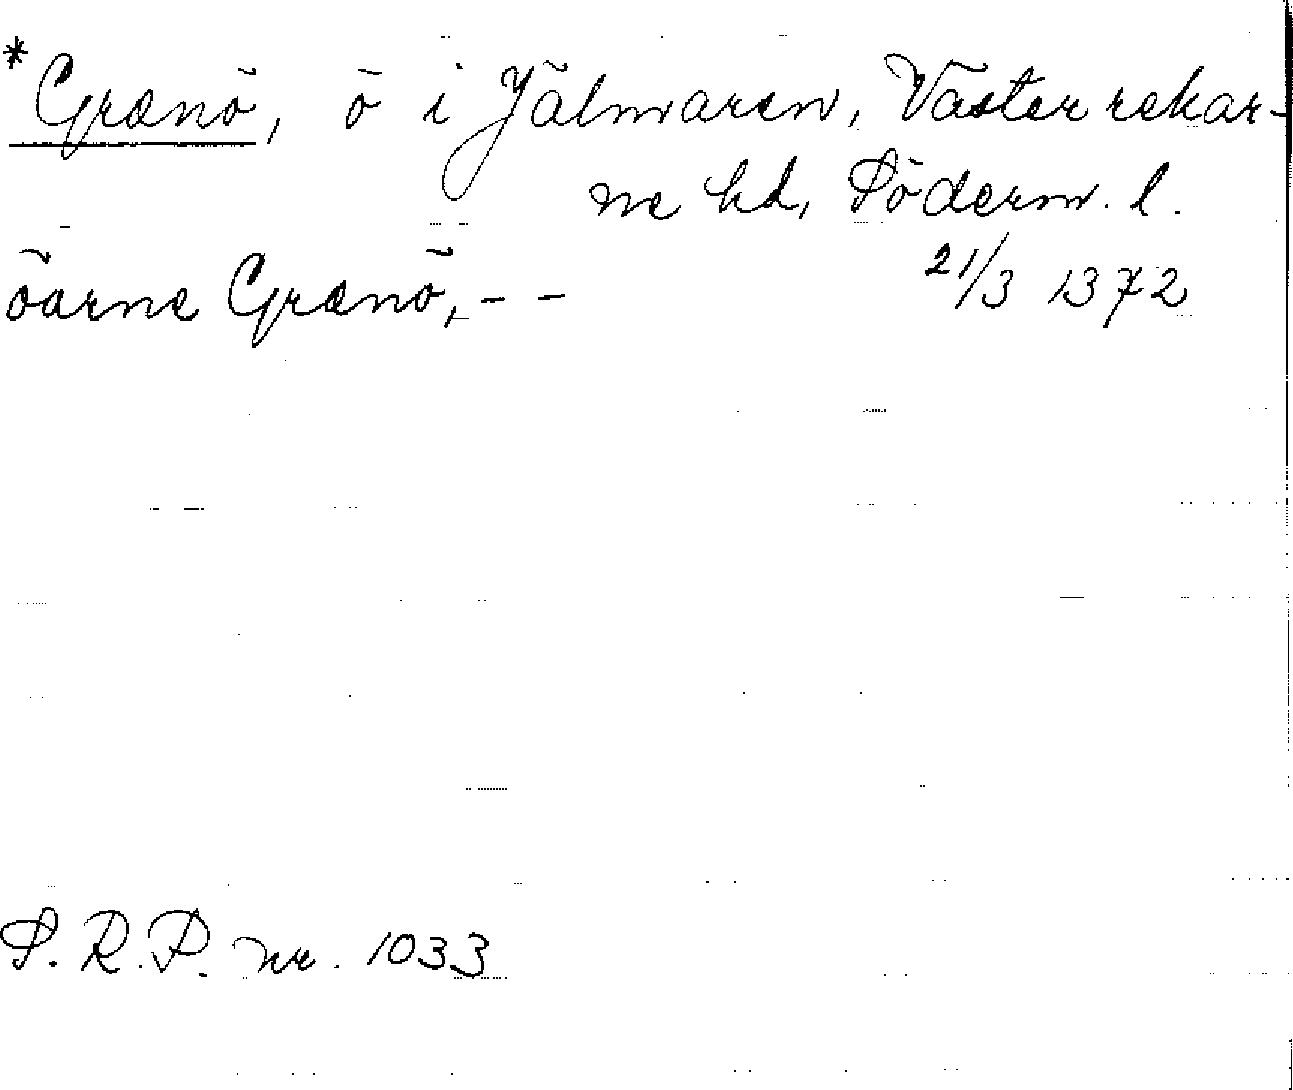 *Grænö, ö i Jälmaren, Väster rekar-
ne hd, Söderm. l.
öarne Grænö, - - 21/3 1372
S. R. P. nr. 1033